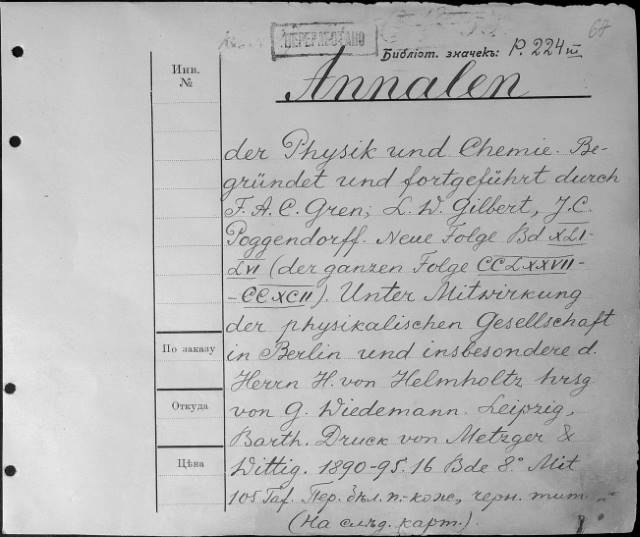 67
ПЕРЕРАБОТАНО
Библіот. значекъ: P. 224 III
Инв.
№
Annalen
der Physik und Chemie. Be-
gründet und fortgeführt durch
F. A. C. Gren; L. W. Gilbert, J. C.
Poggendorff. Neue Folge Bd XLI-
LVI (der ganzen Folge CCLXXVII-
-CCXCII). Unter Mitwirkung
der physikalischen Gesellschaft
По заказу
in Berlin und insbesondere d.
Herrn H. von Helmholtz hrsg
Откуда
von G. Wiedemann. Leipzig,
Barth. Druck von Metzger &
Цѣна
Wittig. 1890-95. 16 Bde 8.° Mit
105 Taf. Пер. бѣл. п.-кож., черн. тит.
(На слѣд. карт.).